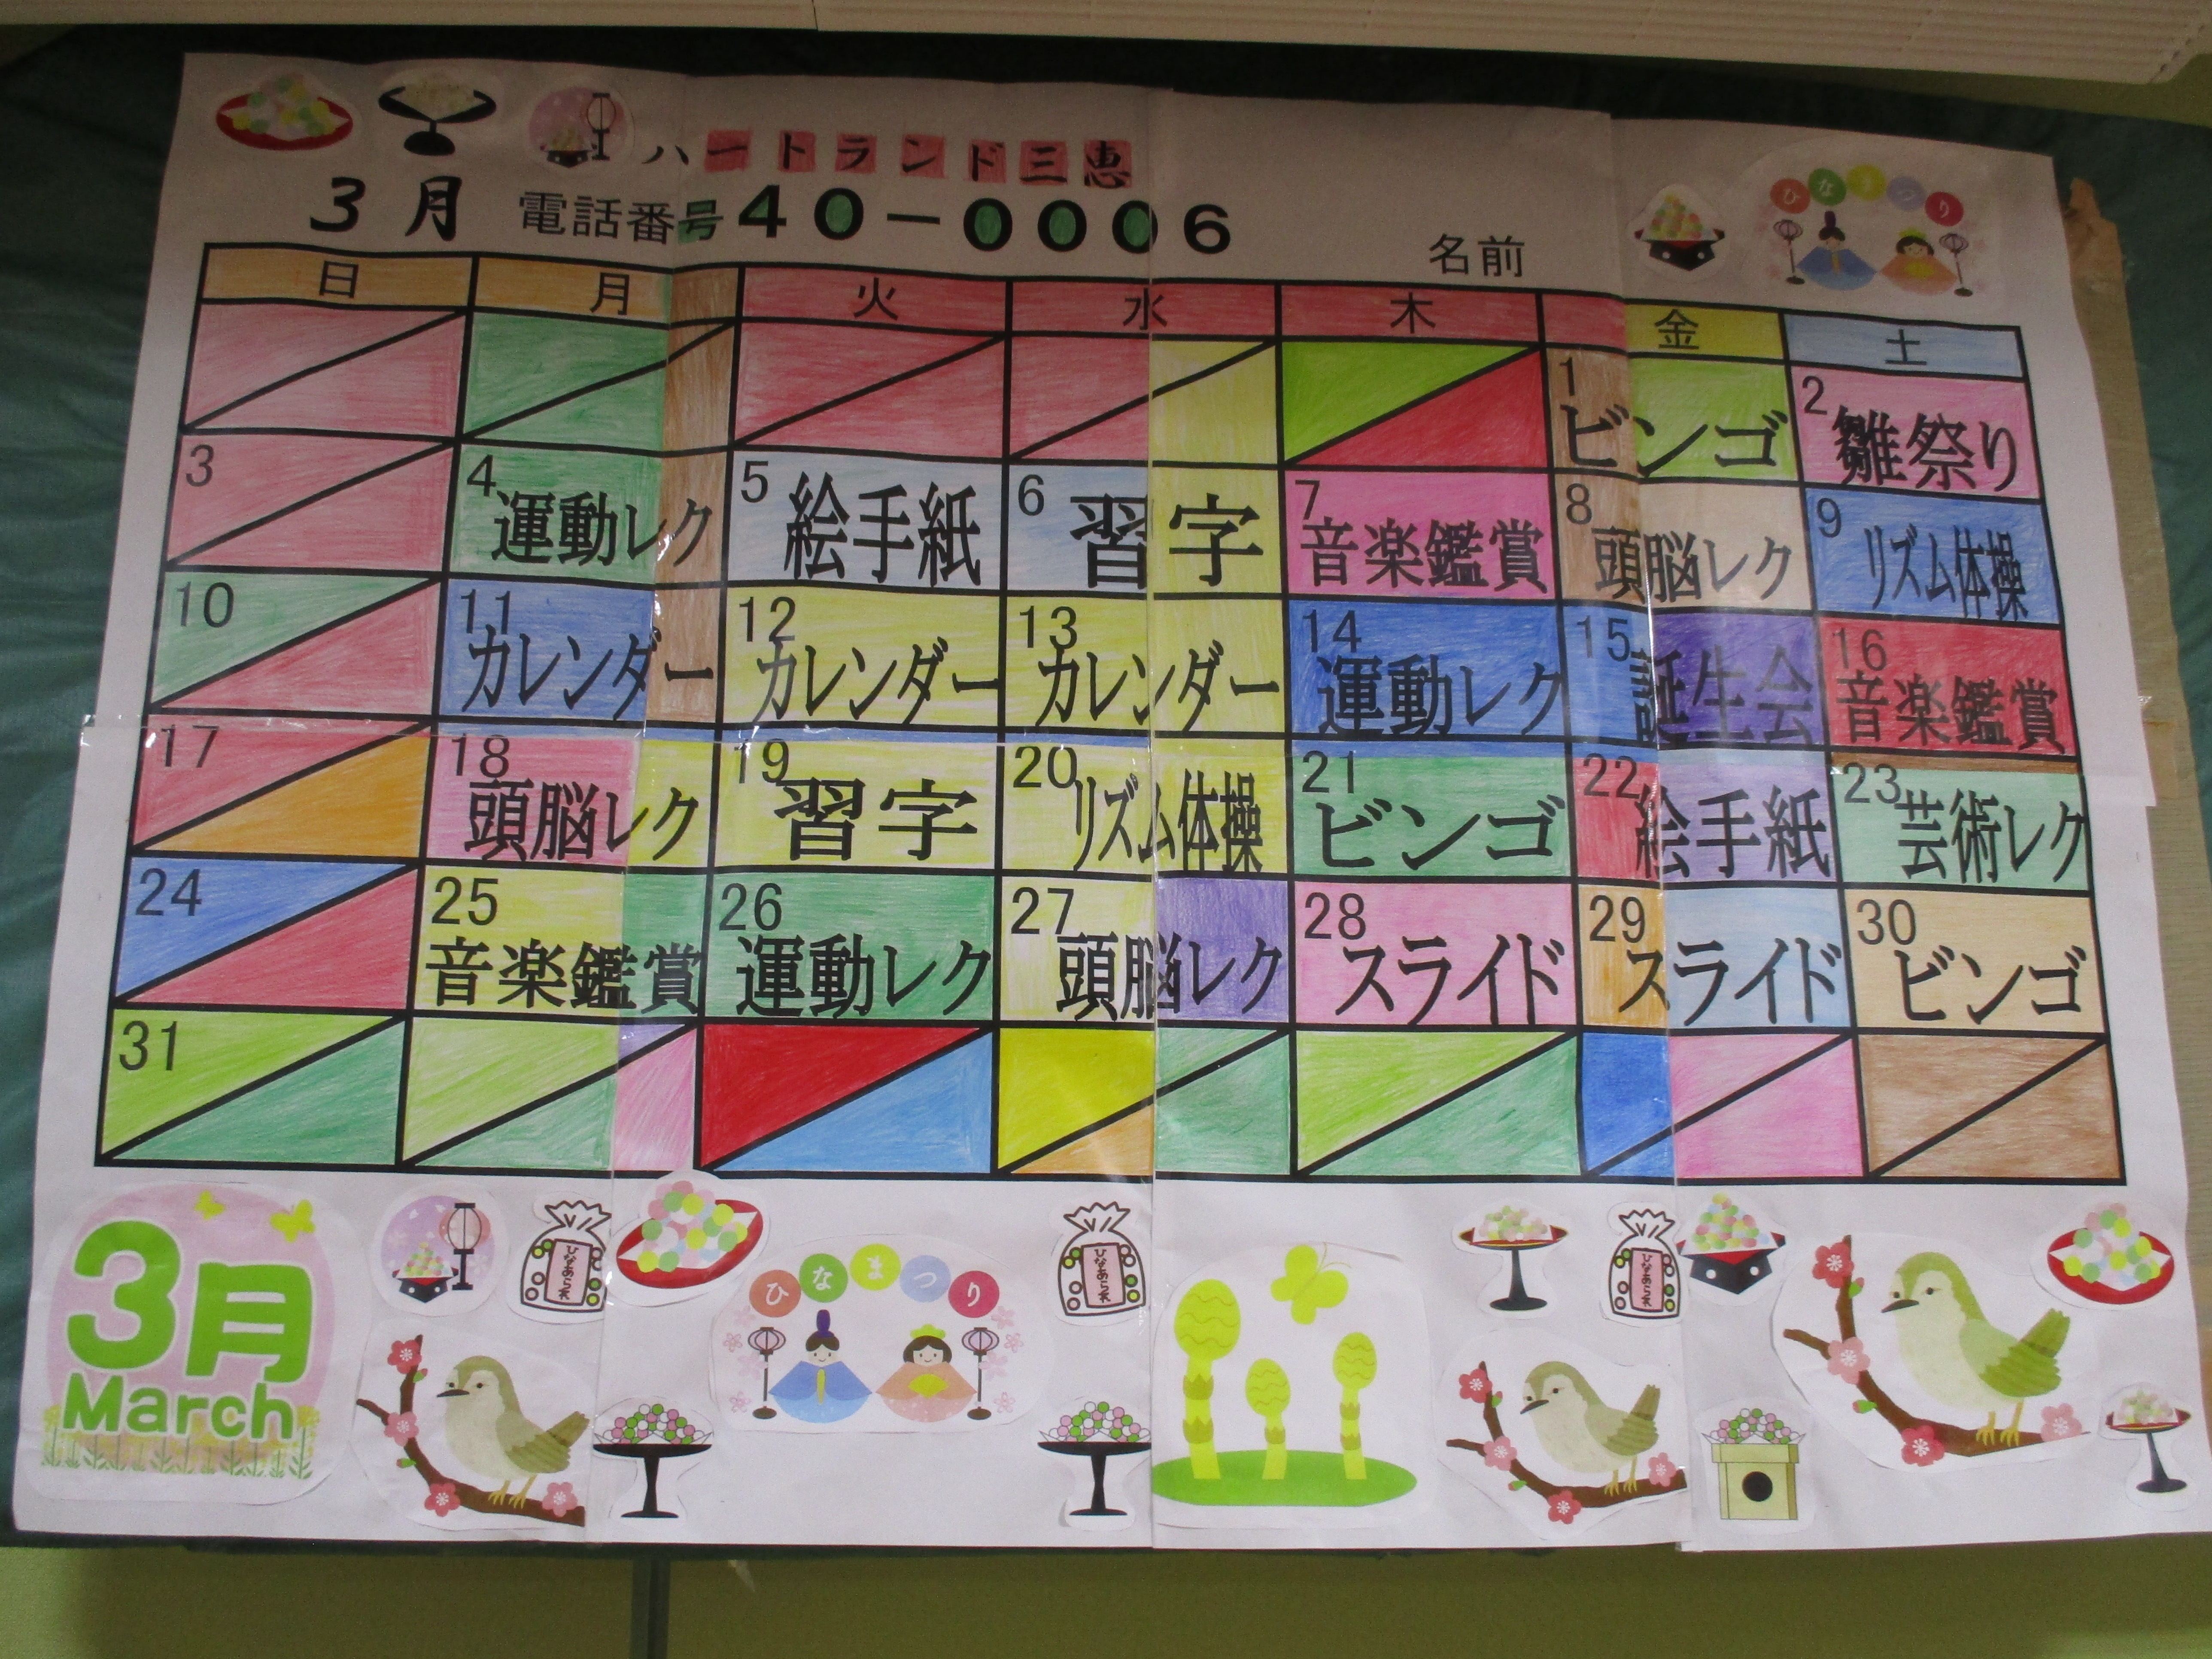 ハートランド三恵
3月 電話番号40-0006 名前
ひなまつり
日 月 火 水 木 金 土
1 ビンゴ 2 雛祭り
3 4 運動レク 5 絵手紙 6 習字 7 音楽鑑賞 8 頭脳レク 9 リズム体操
10 11 カレンダー 12 カレンダー 13 カレンダー 14 運動レク 15 誕生会 16 音楽鑑賞
17 18 頭脳レク 19 習字 20 リズム体操 21 ビンゴ 22 絵手紙 23 芸術レク
24 25 音楽鑑賞 26 運動レク 27 頭脳レク 28 スライド 29 スライド 30 ビンゴ
31
3月
March
ひなあられ
ひなまつり
ひなあられ
ひなあられ